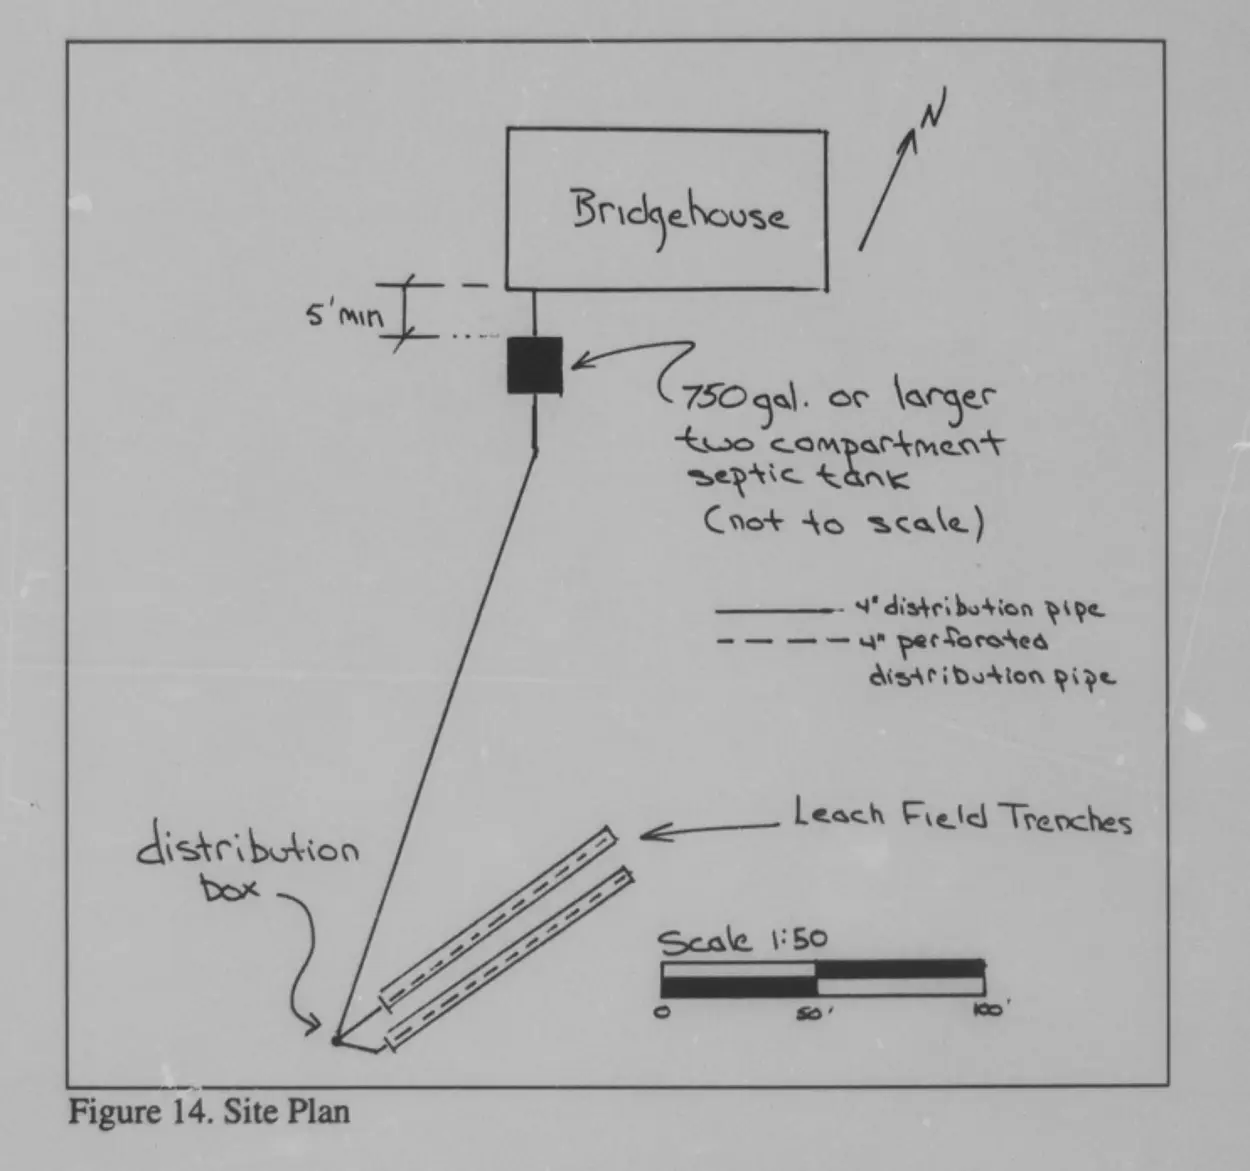 N
Bridgehouse
5' min
750 gal. or larger
two compartment
septic tank
(not to scale)
4" distribution pipe
4" perforated
distribution pipe
Leach Field Trenches
distribution
box
Scale 1:50
0 50' 100'
Figure 14. Site Plan